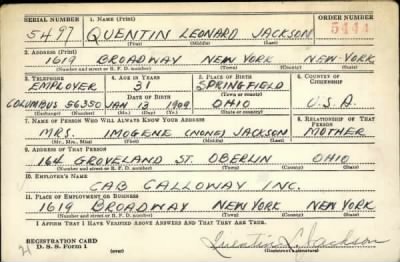 SERIAL NUMBER 1. NAME (Print) ORDER NUMBER
5497 QUENTIN LEONARD JACKSON 5444
(First) (Middle) (Last)
2. ADDRESS (Print)
1619 BROADWAY NEW YORK NEW YORK
(Number and street or R. F. D. number) (Town) (County) (State)
3. TELEPHONE 4. AGE IN YEARS 5. PLACE OF BIRTH 6. COUNTRY OF CITIZENSHIP
EMPLOYER 31 SPRINGFIELD
DATE OF BIRTH (Town or county)
COLUMBUS 56350 JAN 13 1909 OHIO U.S.A.
(Exchange) (Number) (Mo.) (Day) (Yr.) (State or country)
7. NAME OF PERSON WHO WILL ALWAYS KNOW YOUR ADDRESS 8. RELATIONSHIP OF THAT PERSON
MRS. IMOGENE (NONE) JACKSON MOTHER
(Mr., Mrs., Miss) (First) (Middle) (Last)
9. ADDRESS OF THAT PERSON
164 GROVELAND ST. OBERLIN OHIO
(Number and street or R. F. D. number) (Town) (County) (State)
10. EMPLOYER'S NAME
CAB CALLOWAY INC.
11. PLACE OF EMPLOYMENT OR BUSINESS
1619 BROADWAY NEW YORK NEW YORK
(Number and street or R. F. D. number) (Town) (County) (State)
I AFFIRM THAT I HAVE VERIFIED ABOVE ANSWERS AND THAT THEY ARE TRUE.
REGISTRATION CARD
D. S. S. Form 1 (over) Quentin L. Jackson
(Registrant's signature)